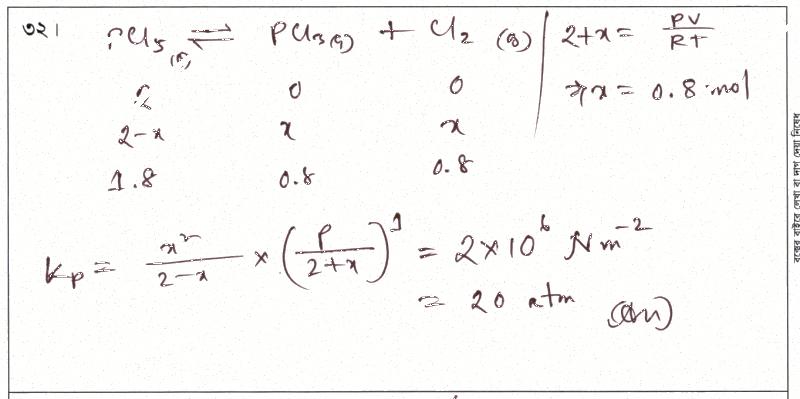 ৩২। PCl₅(g) ⇌ PCl₃(g) + Cl₂ (g)
2 0 0
2-x x x
1.8 0.8 0.8
2+x = PV/RT
⇒ x = 0.8 mol
Kp = x²/2-x × (P/2+x)¹ = 2×10⁶ Nm⁻²
= 20 atm (Ans)
বক্সের বাইরে লেখা বা দাগ দেয়া নিষেধ